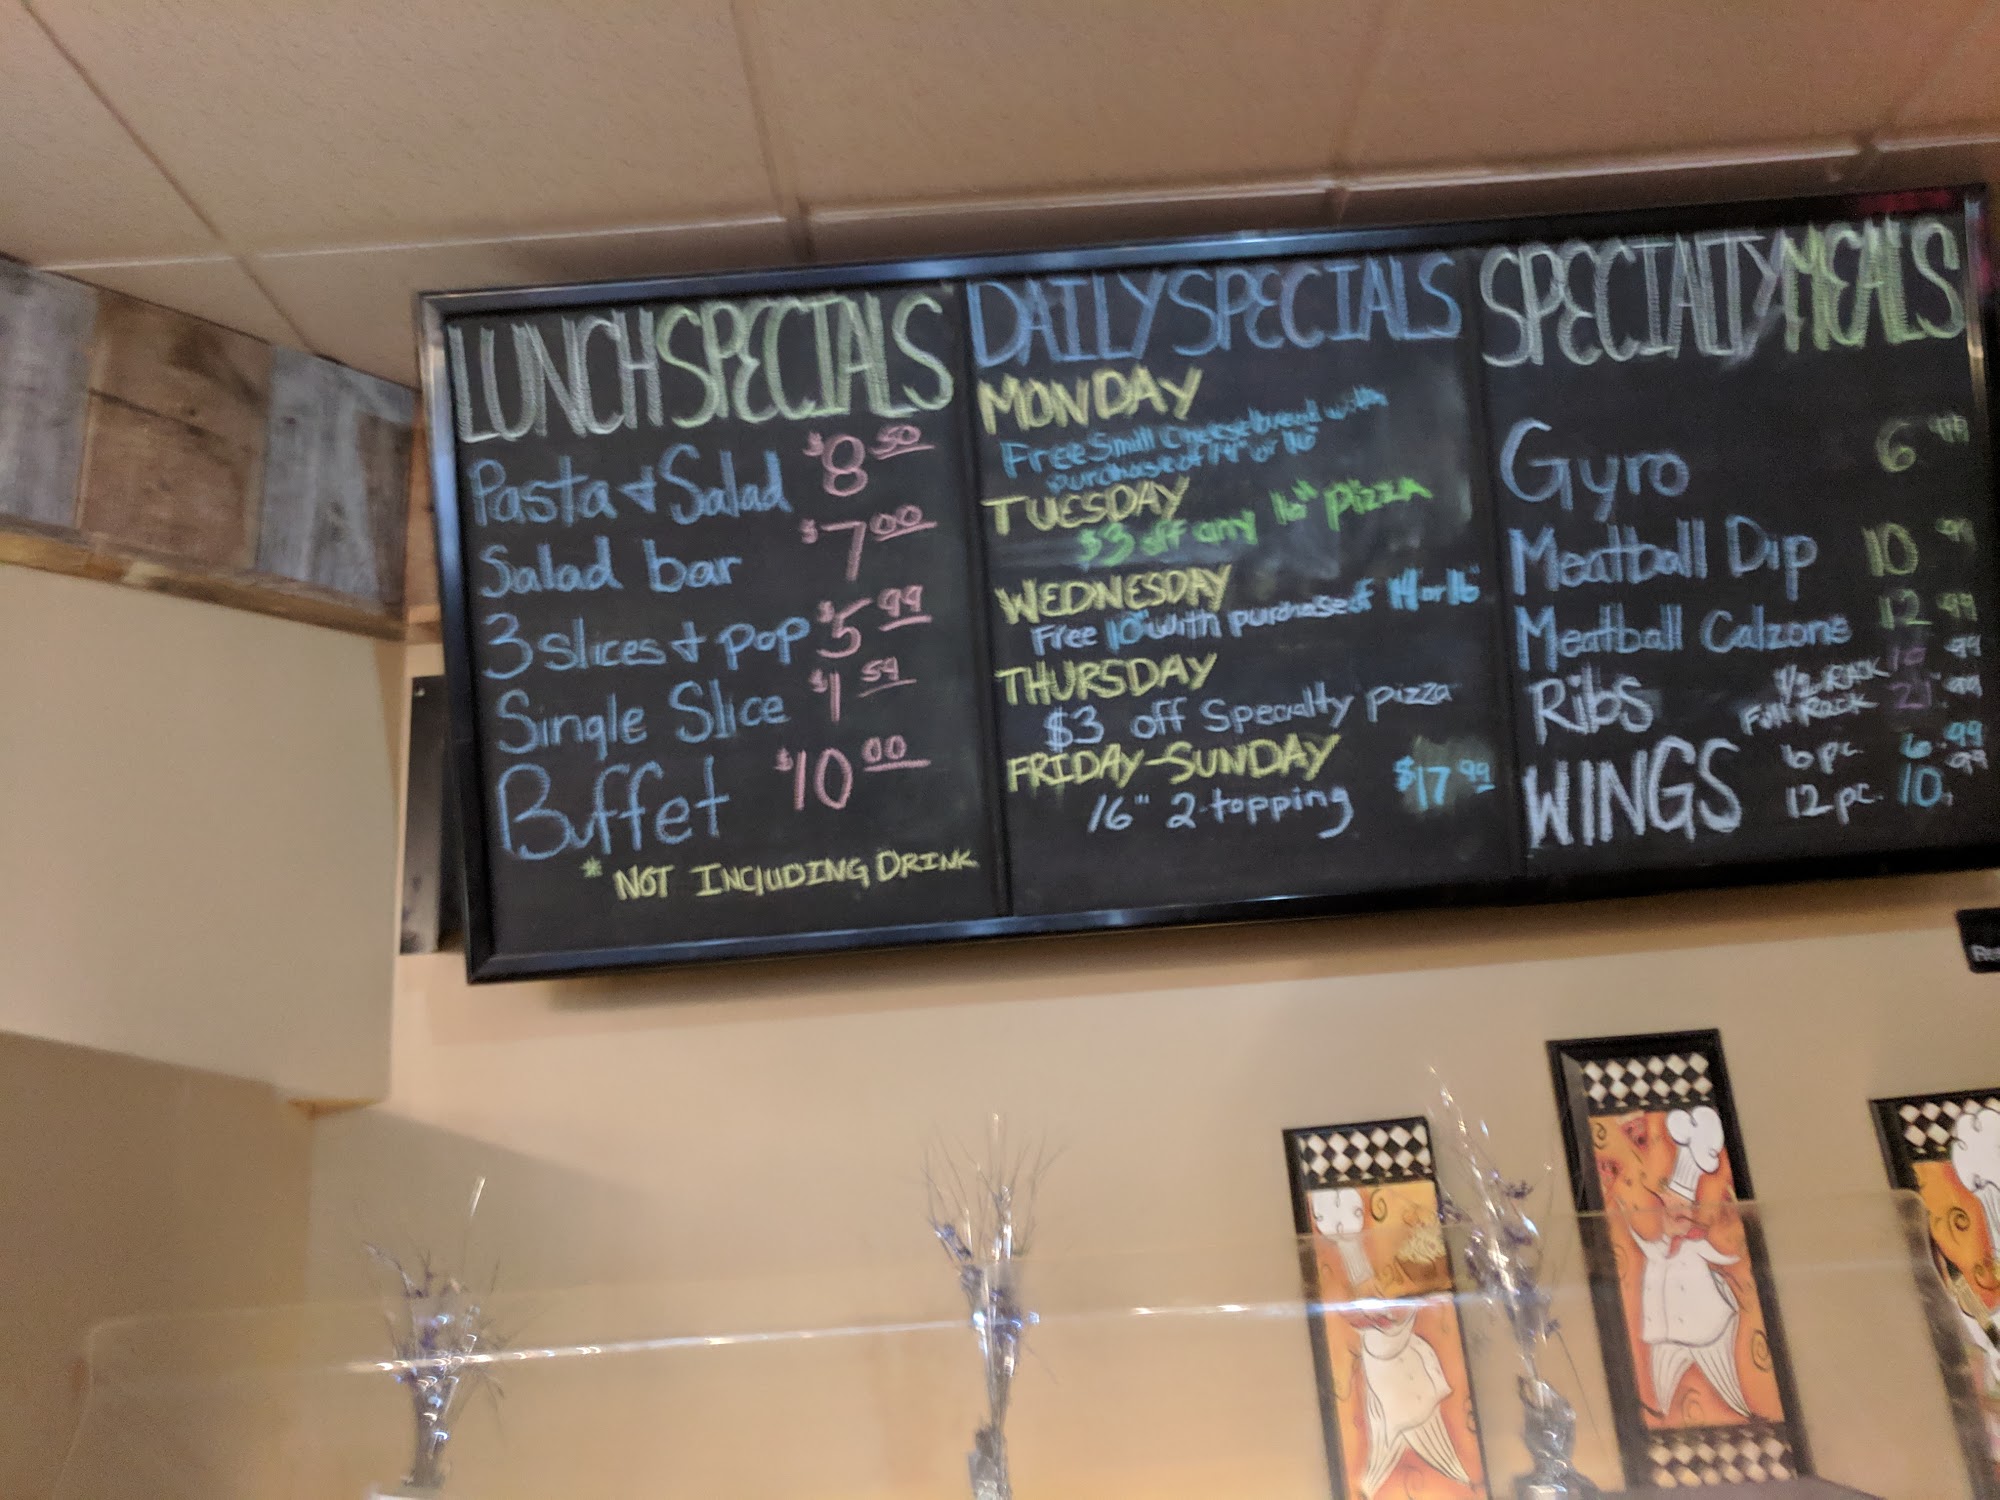 LUNCH SPECIALS
Pasta + Salad $8.50
Salad bar $7.00
3 slices + pop $5.99
Single Slice $1.59
Buffet $10.00
* NOT INCLUDING DRINK
DAILY SPECIALS
MONDAY
Free Small Cheesebread with
purchase of 14" or 16"
TUESDAY
$3 off any 16" pizza
WEDNESDAY
Free 10" with purchase of 14 or 16"
THURSDAY
$3 off Specialty pizza
FRIDAY-SUNDAY
16" 2-topping $17.99
SPECIALTY MEALS
Gyro 6.99
Meatball Dip 10.99
Meatball Calzone 12.99
Ribs 1/2 RACK .99
Full Rack 21.99
WINGS 6 pc. 6.99
12 pc. 10.99